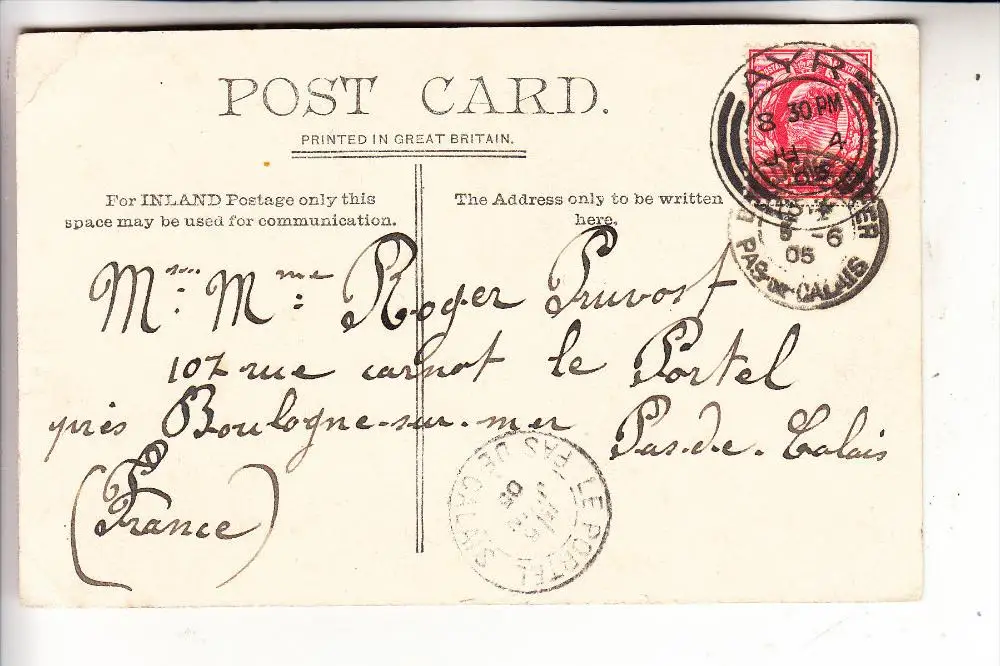 POST CARD.
PRINTED IN GREAT BRITAIN.
For INLAND Postage only this
space may be used for communication.
The Address only to be written
here.
AYR
8 30 PM
4
5 -6
05
PAS-DE-CALAIS
Mr. Mme Roger Pruvost
107 rue carnot le Portel
près Boulogne-sur-mer Pas-de-Calais
(France)
LE PORTEL
PAS DE CALAIS
05